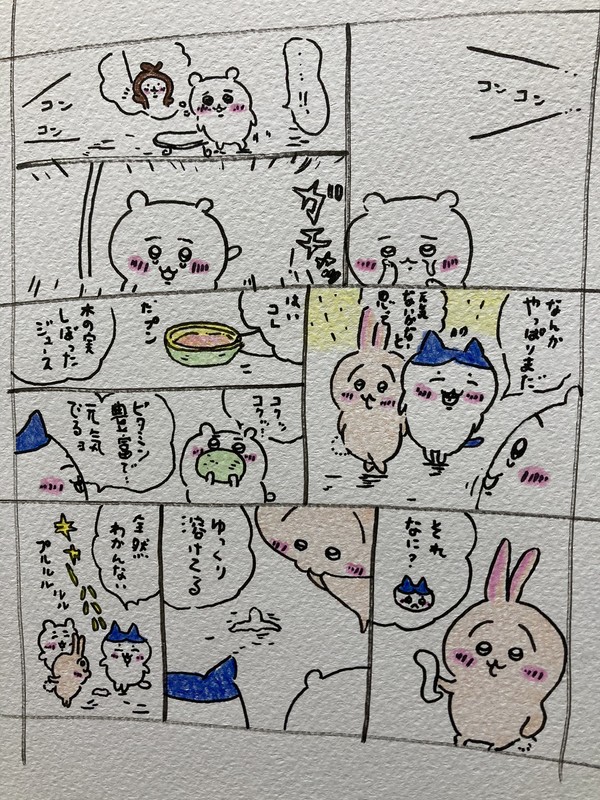 コン
コン
…‥!!
コン
コン
ガチャ
なんか
やっぱりまだ
元気
ないかな〜と
思って
はい
コレ
だプン
木の実
しぼった
ジュース
コクッ
コクッ…!
ビタミン
豊富で…
元気
でるョ
それ
なに?
ゆっくり
溶けてる
全然
わかんない
プルルルルル